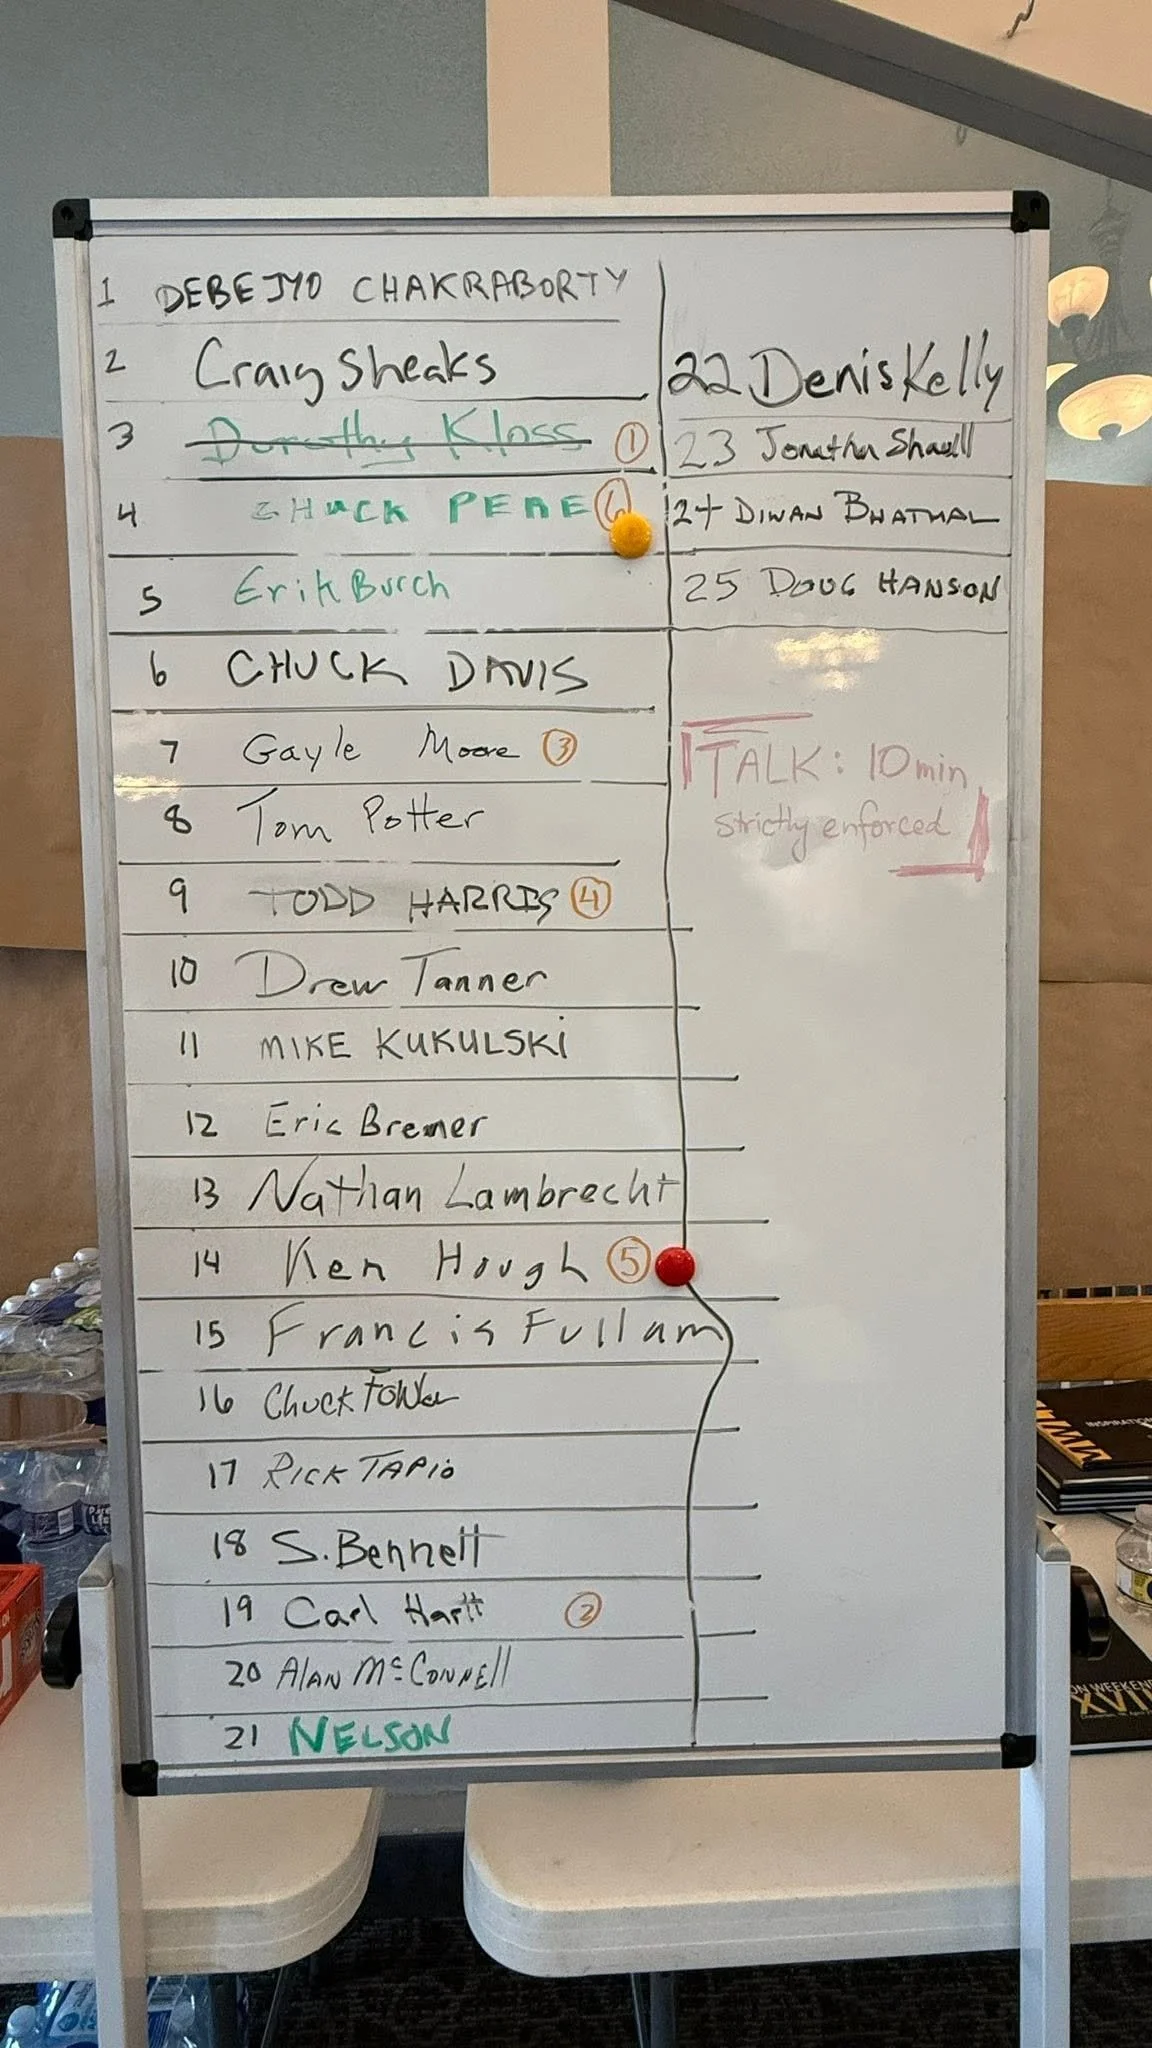 1 DEBEJYO CHAKRABORTY
2 Craig Sheaks
3 Dorothy Kloss ①
4 CHUCK PERE
5 Erik Burch
6 CHUCK DAVIS
7 Gayle Moore ③
8 Tom Potter
9 TODD HARRIS ④
10 Drew Tanner
11 MIKE KUKULSKI
12 Eric Bremer
13 Nathan Lambrecht
14 Ken Hough ⑤
15 Francis Fullam
16 Chuck Fowler
17 RICK TAPIO
18 S. Bennett
19 Carl Hartt ②
20 ALAN McCONNELL
21 NELSON
22 Denis Kelly
23 Jonathan
24 DIWAN BHATHAL
25 DOUG HANSON
TALK: 10min
strictly enforced
INSPIRATION
ON WEEKEND
XVII